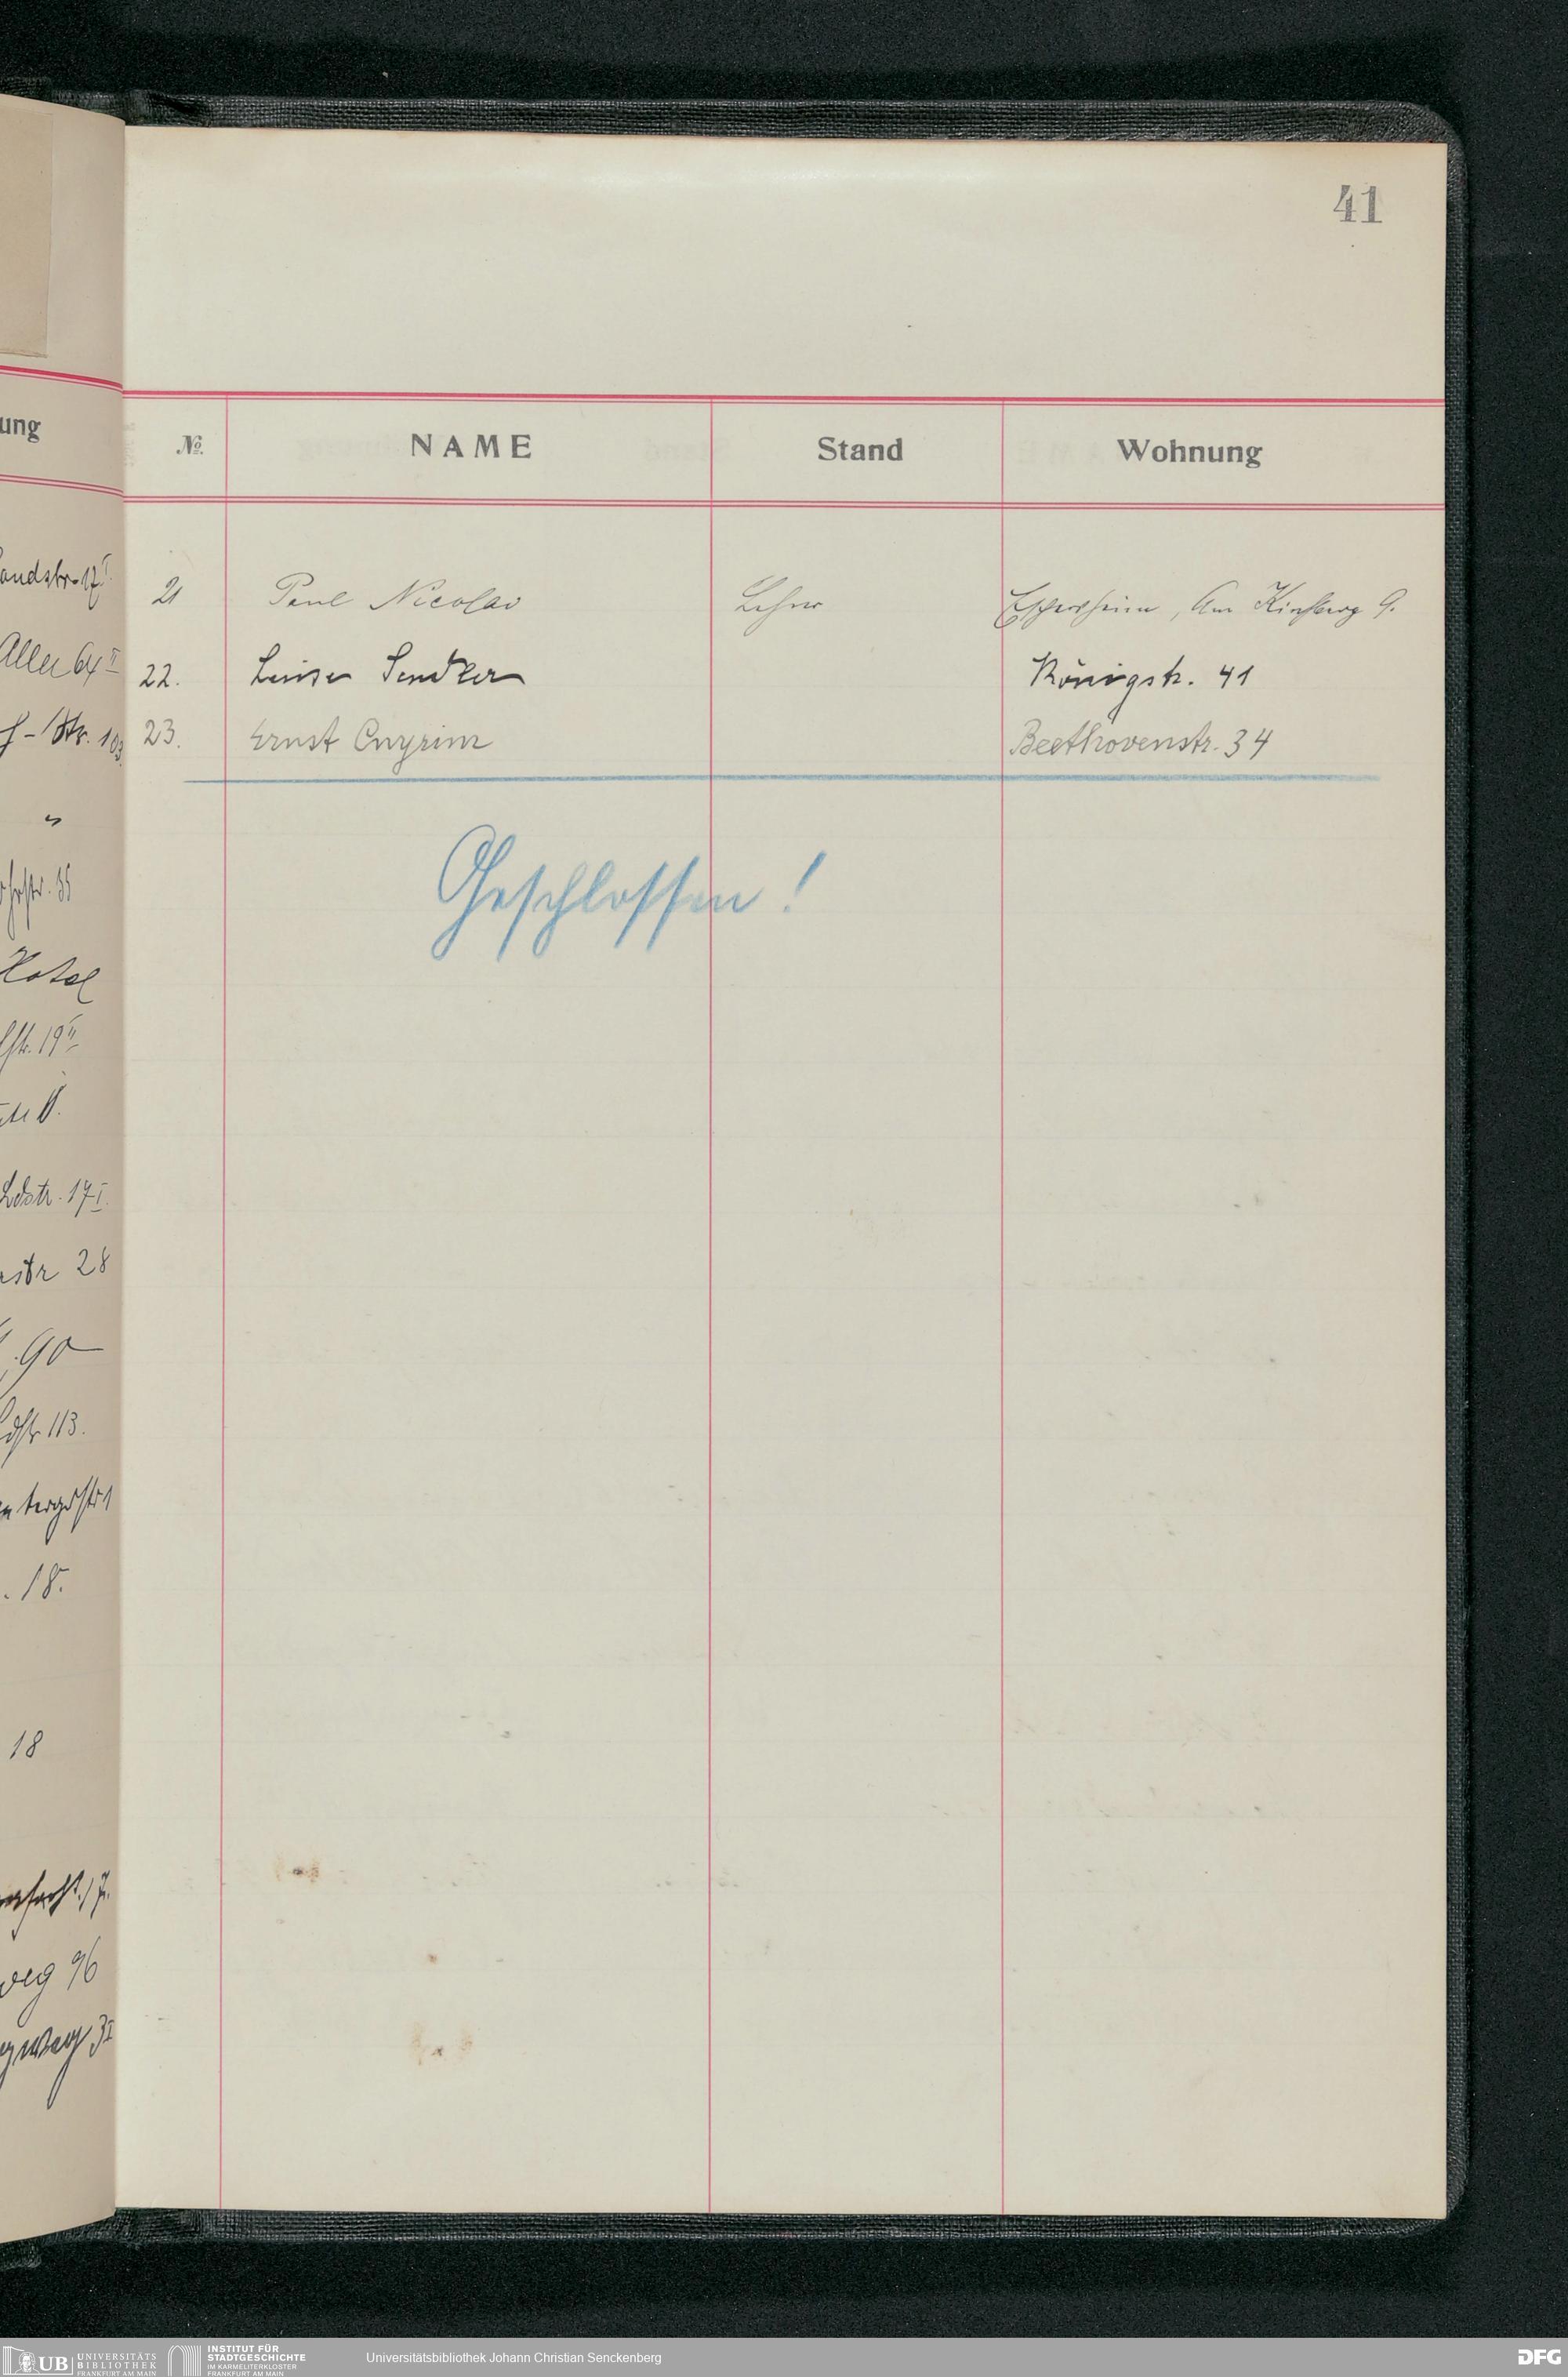 41
ung
№ NAME Stand Wohnung
21 Paul Nicolai Lehrer Eschersheim, Am Kirchberg 9.
22. Luise Sendler Königstr. 41
23. Ernst Cnyrim Beethovenstr. 34
Geschlossen!
landstr. 17 I.
Allee 64 II
f-Str. 103
"
str. 35
Hotel
str. 19 II
Ldstr. 17 I.
str 28
90
Ldstr 113.
18.
18
weg 96
gweg 3 I
UB UNIVERSITÄTS BIBLIOTHEK FRANKFURT AM MAIN
INSTITUT FÜR STADTGESCHICHTE IM KARMELITERKLOSTER FRANKFURT AM MAIN
Universitätsbibliothek Johann Christian Senckenberg
DFG